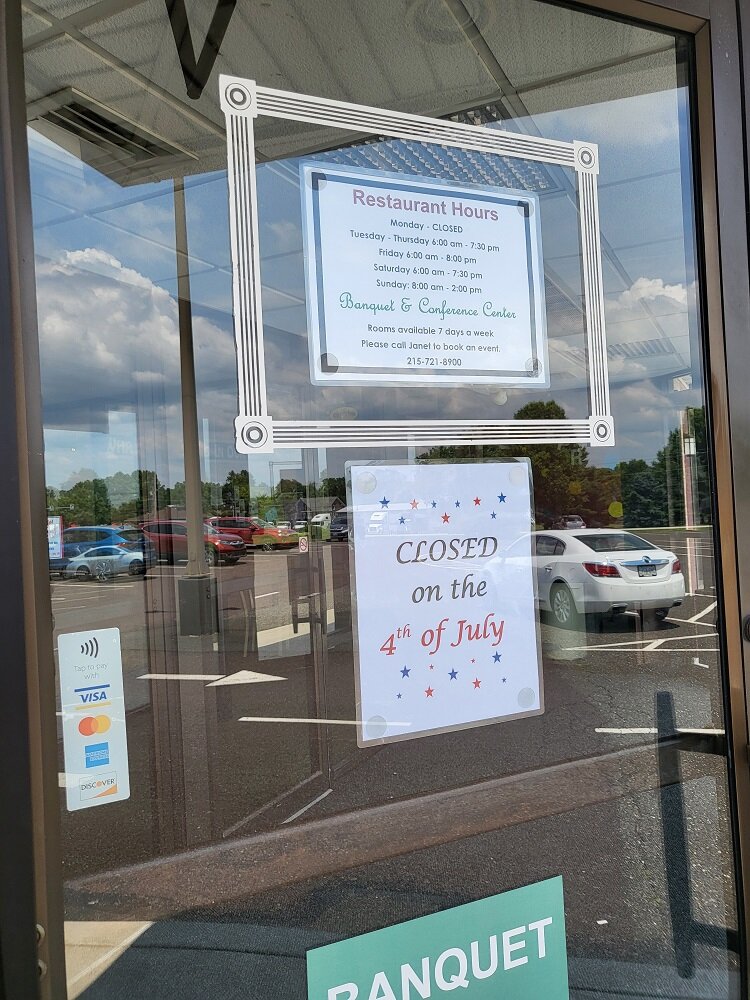 Restaurant Hours
Monday - CLOSED
Tuesday - Thursday 6:00 am - 7:30 pm
Friday 6:00 am - 8:00 pm
Saturday 6:00 am - 7:30 pm
Sunday: 8:00 am - 2:00 pm
Banquet & Conference Center
Rooms available 7 days a week
Please call Janet to book an event.
215-721-8900
CLOSED
on the
4th of July
Tap to pay
with
VISA
DISCOVER
BANQUET